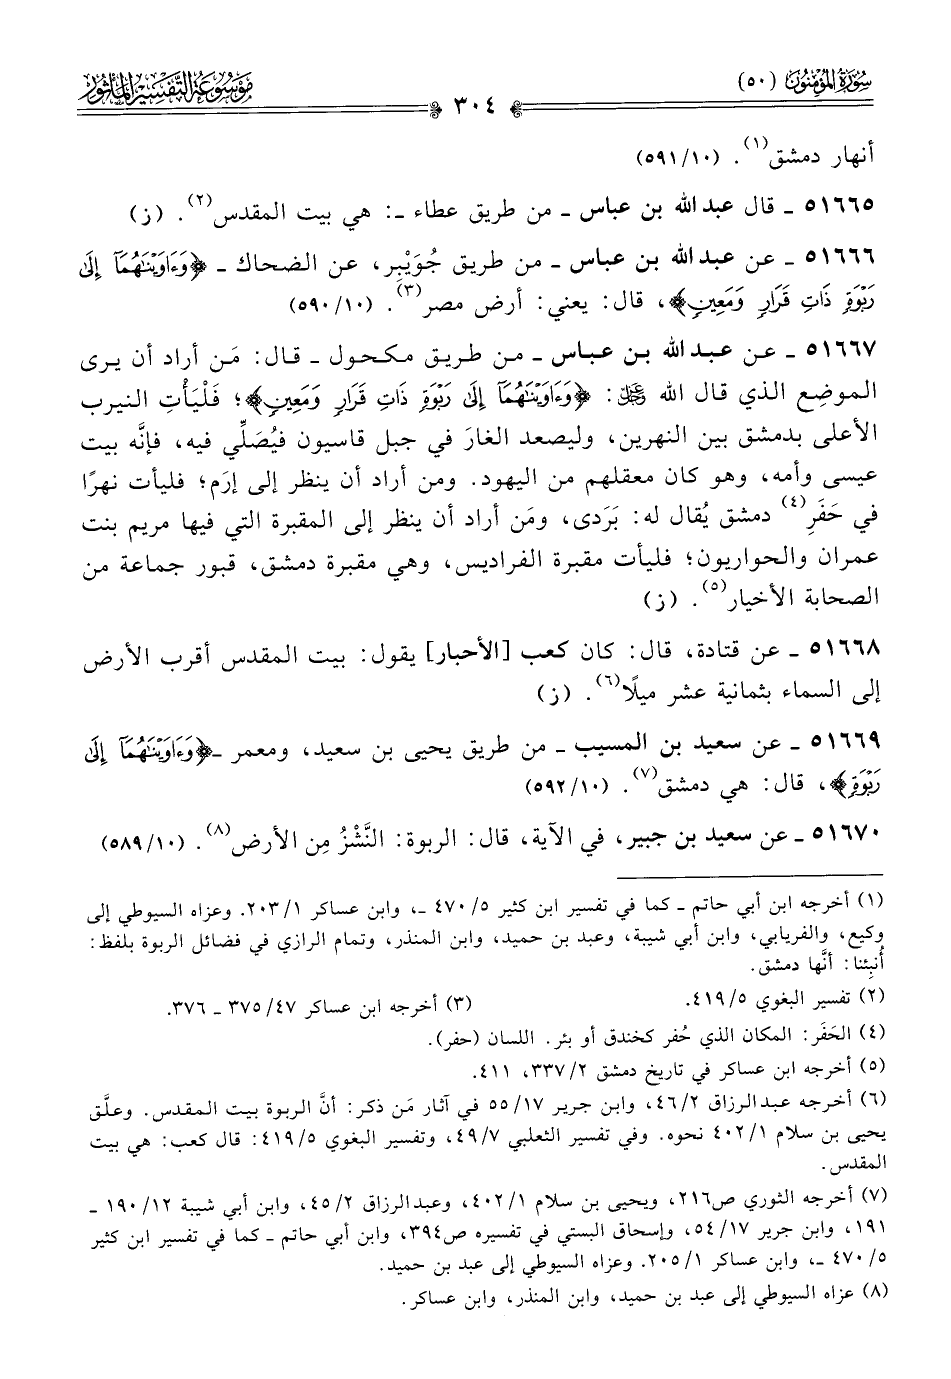 سُورَةُ المُؤْمِنُونَ (٥٠)
٣٠٤
مَوْسُوعَة التَّفْسِيرُ المَأْثُور
أنهار دمشق(١). (٥٩١/١٠)
٥١٦٦٥ ـ قال عبد الله بن عباس ـ من طريق عطاء ـ: هي بيت المقدس(٢). (ز)
٥١٦٦٦ ـ عن عبد الله بن عباس ـ من طريق جُوَيْبِر، عن الضحاك ـ ﴿وَءَاوَيْنَـٰهُمَآ إِلَىٰ
رَبْوَةٍ ذَاتِ قَرَارٍ وَمَعِينٍ﴾، قال: يعني: أرض مصر(٣). (٥٩٠/١٠)
٥١٦٦٧ ـ عن عبد الله بن عباس ـ من طريق مكحول ـ قال: مَن أراد أن يرى
الموضِع الذي قال الله ﷿: ﴿وَءَاوَيْنَـٰهُمَآ إِلَىٰ رَبْوَةٍ ذَاتِ قَرَارٍ وَمَعِينٍ﴾؛ فَلْيَأْتِ النيرب
الأعلى بدمشق بين النهرين، وليصعد الغارَ في جبل قاسيون فيُصَلِّي فيه، فإنَّه بيت
عيسى وأمه، وهو كان معقلهم من اليهود. ومن أراد أن ينظر إلى إرَم؛ فليأت نهرًا
في حَفَرِ(٤) دمشق يُقال له: بَرَدى، ومَن أراد أن ينظر إلى المقبرة التي فيها مريم بنت
عمران والحواريون؛ فليأت مقبرة الفراديس، وهي مقبرة دمشق، قبور جماعة من
الصحابة الأخيار(٥). (ز)
٥١٦٦٨ ـ عن قتادة، قال: كان كعب [الأحبار] يقول: بيت المقدس أقرب الأرض
إلى السماء بثمانية عشر ميلًا(٦). (ز)
٥١٦٦٩ ـ عن سعيد بن المسيب ـ من طريق يحيى بن سعيد، ومعمر ـ ﴿وَءَاوَيْنَـٰهُمَآ إِلَىٰ
رَبْوَةٍ﴾، قال: هي دمشق(٧). (٥٩٢/١٠)
٥١٦٧٠ ـ عن سعيد بن جبير، في الآية، قال: الربوة: النَّشْزُ مِن الأرض(٨). (٥٨٩/١٠)
(١) أخرجه ابن أبي حاتم ـ كما في تفسير ابن كثير ٤٧٠/٥ ـ، وابن عساكر ٢٠٣/١. وعزاه السيوطي إلى
وكيع، والفريابي، وابن أبي شيبة، وعبد بن حميد، وابن المنذر، وتمام الرازي في فضائل الربوة بلفظ:
أُنبِئنا: أنَّها دمشق.
(٢) تفسير البغوي ٤١٩/٥. (٣) أخرجه ابن عساكر ٣٧٥/٤٧ ـ ٣٧٦.
(٤) الحَفَر: المكان الذي حُفر كخندق أو بئر. اللسان (حفر).
(٥) أخرجه ابن عساكر في تاريخ دمشق ٣٣٧/٢، ٤١١.
(٦) أخرجه عبدالرزاق ٤٦/٢، وابن جرير ٥٥/١٧ في آثار مَن ذكر: أنَّ الربوة بيت المقدس. وعلَّق
يحيى بن سلام ٤٠٢/١ نحوه. وفي تفسير الثعلبي ٤٩/٧، وتفسير البغوي ٤١٩/٥: قال كعب: هي بيت
المقدس.
(٧) أخرجه الثوري ص٢١٦، ويحيى بن سلام ٤٠٢/١، وعبدالرزاق ٤٥/٢، وابن أبي شيبة ١٩٠/١٢ ـ
١٩١، وابن جرير ٥٤/١٧، وإسحاق البستي في تفسيره ص٣٩٤، وابن أبي حاتم ـ كما في تفسير ابن كثير
٤٧٠/٥ ـ، وابن عساكر ٢٠٥/١. وعزاه السيوطي إلى عبد بن حميد.
(٨) عزاه السيوطي إلى عبد بن حميد، وابن المنذر، وابن عساكر.